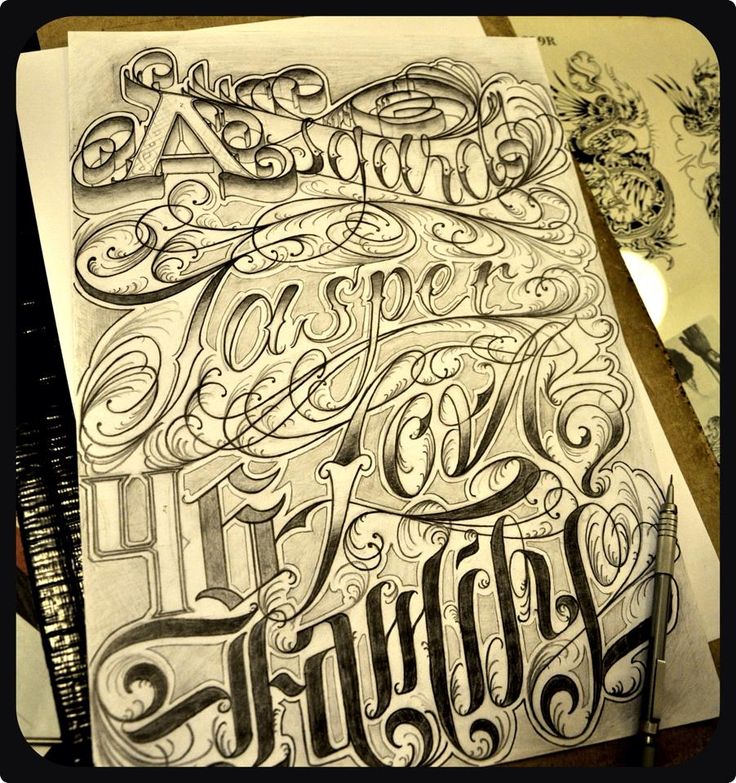 Asgard
Jasper
46
Family